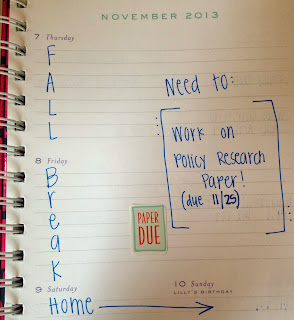 NOVEMBER 2013
7 Thursday
F
A
L
L
Need to:
Work on
Policy Research
Paper!
(due 11/25)
8 Friday
B
r
e
a
K
PAPER
DUE
9 Saturday
Home
10 Sunday
LILLY'S BIRTHDAY